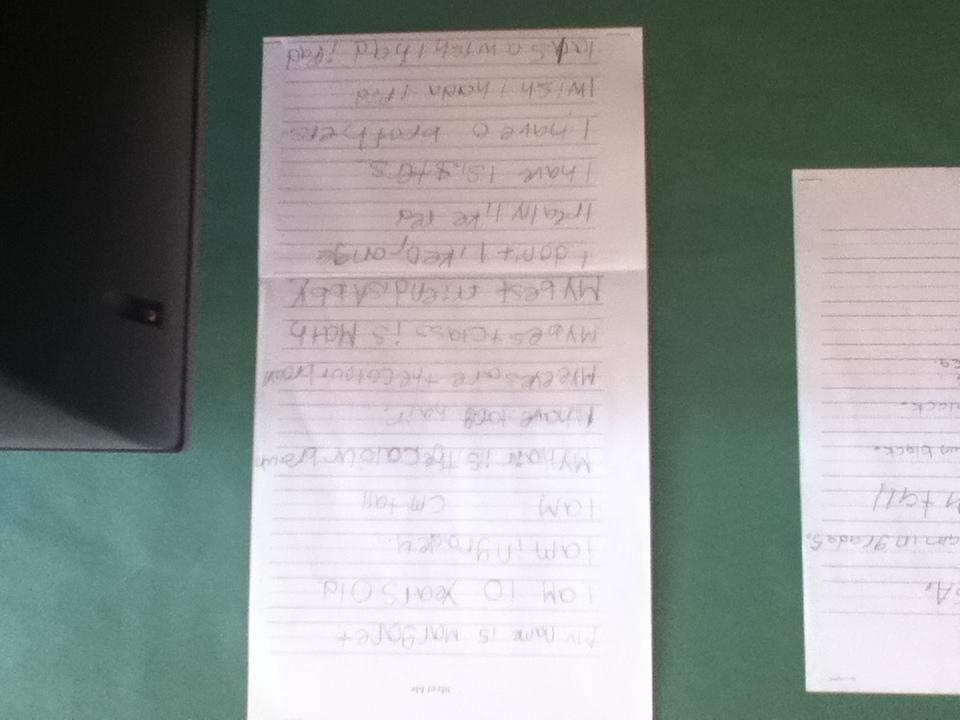 Meet Me
My name is Margaret
I am 10 years old
I am in grade 4.
I am cm tall
My hair is the colour brown
I have long hair.
My eyes are the colour brown
My best class is Math
My best friend is Abby.
I don't like Orange
I really like red
I have 1
I have 0 brothers.
I wish i had a iPod
I also wish I had iPad
am in grade 5.
tall
black.